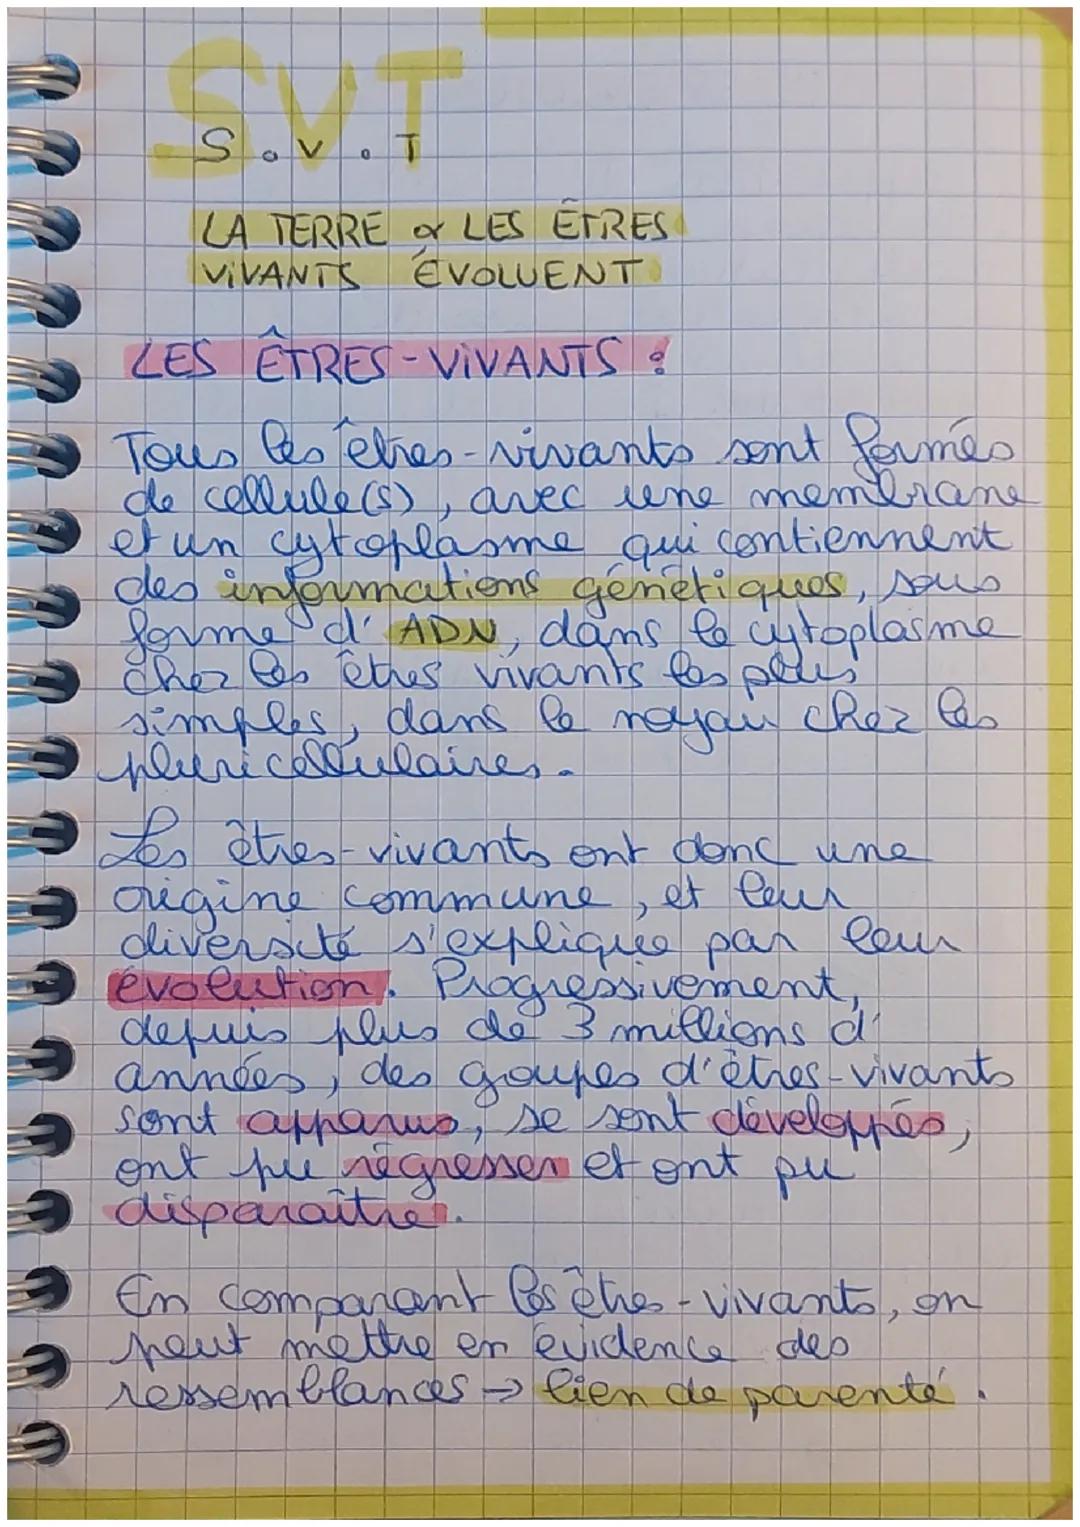 SVT
S.V.T
LA TERRE & LES ÊTRES
VIVANTS ÉVOLUENT
LES ÊTRES-VIVANTS :
Tous les êtres-vivants sont formés
de cellule(s), avec une membrane
et un cytoplasme qui contiennent
des informations génétiques, sous
forme d'ADN, dans le cytoplasme
chez les êtres vivants les plus
simples, dans le noyau chez les
pluricellulaires.
Les êtres-vivants ont donc une
origine commune, et leur
diversité s'explique par leur
évolution. Progressivement,
depuis plus de 3 millions d'
années, des groupes d'êtres-vivants
sont apparus, se sont développés,
ont pu régresser et ont pu
disparaître.
En comparant les êtres-vivants, on
peut mettre en évidence des
ressemblances → lien de parenté.